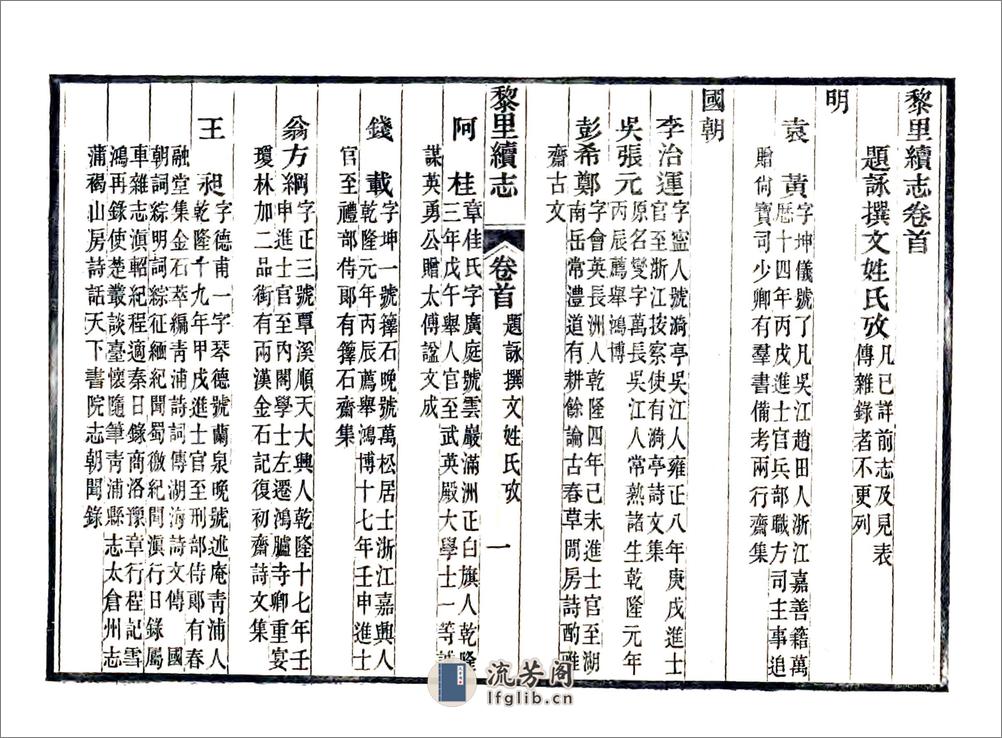 黎里續志卷首
題詠撰文姓氏攷
凡已詳前志及見表
傳雜錄者不更列
明
袁黃
字坤儀號了凡吳江趙田人浙江嘉善籍萬
曆十四年丙戌進士官兵部職方司主事追
贈尙寶司少卿有羣書備考兩行齋集
國朝
李治運
字寧人號漪亭吳江人雍正八年庚戌進士
官至浙江按察使有漪亭詩文集
吳張元
原名燮字萬長吳江人常熟諸生乾隆元年
丙辰薦舉鴻博
彭希鄭
字會英長洲人乾隆四年己未進士官至湖
南岳常澧道有耕餘論古春草閒房詩酌雅
齋古文
黎里續志
卷首
題詠撰文姓氏攷
一
阿桂
章佳氏字廣庭號雲巖滿洲正白旗人乾隆
三年戊午舉人官至武英殿大學士一等誠
謀英勇公贈太傅諡文成
錢載
字坤一號籜石晚號萬松居士浙江嘉興人
乾隆元年丙辰薦舉鴻博十七年壬申進士
官至禮部侍郎有籜石齋集
翁方綱
字正三號覃溪順天大興人乾隆十七年壬
申進士官至內閣學士左遷鴻臚寺卿重宴
瓊林加二品銜有兩漢金石記復初齋詩文集
王昶
字德甫一字琴德號蘭泉晚號述庵靑浦人
乾隆十九年甲戌進士官至刑部侍郎有春
融堂集金石萃編靑浦詩詞傳湖海詩文傳國
朝詞綜明詞綜征緬紀聞蜀徼紀聞滇行日錄屬
車雜志滇軺紀程適秦日錄商洛豫章行程記雪
鴻再錄使楚叢談臺懷隨筆靑浦縣志太倉州志
蒲褐山房詩話天下書院志朝聞錄
流芳阁
lfglib.cn